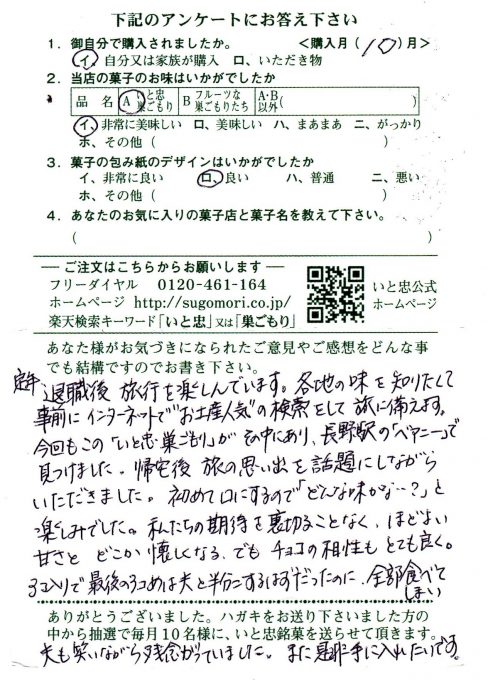 下記のアンケートにお答え下さい
1．御自分で購入されましたか。　＜購入月（10）月＞
イ、自分又は家族が購入　ロ、いただき物
2．当店の菓子のお味はいかがでしたか
品 名　A いと忠巣ごもり　B フルーツな巣ごもりたち　A・B以外（　　　）
イ、非常に美味しい　ロ、美味しい　ハ、まあまあ　ニ、がっかり
ホ、その他（　　　）
3．菓子の包み紙のデザインはいかがでしたか
イ、非常に良い　ロ、良い　ハ、普通　ニ、悪い
ホ、その他（　　　）
4．あなたのお気に入りの菓子店と菓子名を教えて下さい。
（　　　）
― ご注文はこちらからお願いします ―
フリーダイヤル　0120-461-164
ホームページ　http://sugomori.co.jp/
楽天検索キーワード「いと忠」又は「巣ごもり」
いと忠公式
ホームページ
あなた様がお気づきになられたご意見やご感想をどんな事
でも結構ですのでお書き下さい。
定年退職後 旅行を楽しんでいます。各地の味を知りたくて
事前にインターネットで"お土産人気"の検索をして旅に備えます。
今回もこの「いと忠・巣ごもり」がその中にあり、長野駅の「ベアニー」で
見つけました。帰宅後 旅の思い出を話題にしながら
いただきました。初めて口にするので「どんな味かな…？」と
楽しみでした。私たちの期待を裏切ることなく、ほどよい
甘さと どこか懐しくなる、でも チョコの相性も とても良く。
3コ入りで最後の3コめは夫と半分こするはずだったのに、全部食べて
しまい
ありがとうございました。ハガキをお送り下さいました方の
中から抽選で毎月10名様に、いと忠銘菓を送らせて頂きます。
夫も笑いながら残念がっていました。また是非手に入れたいです。